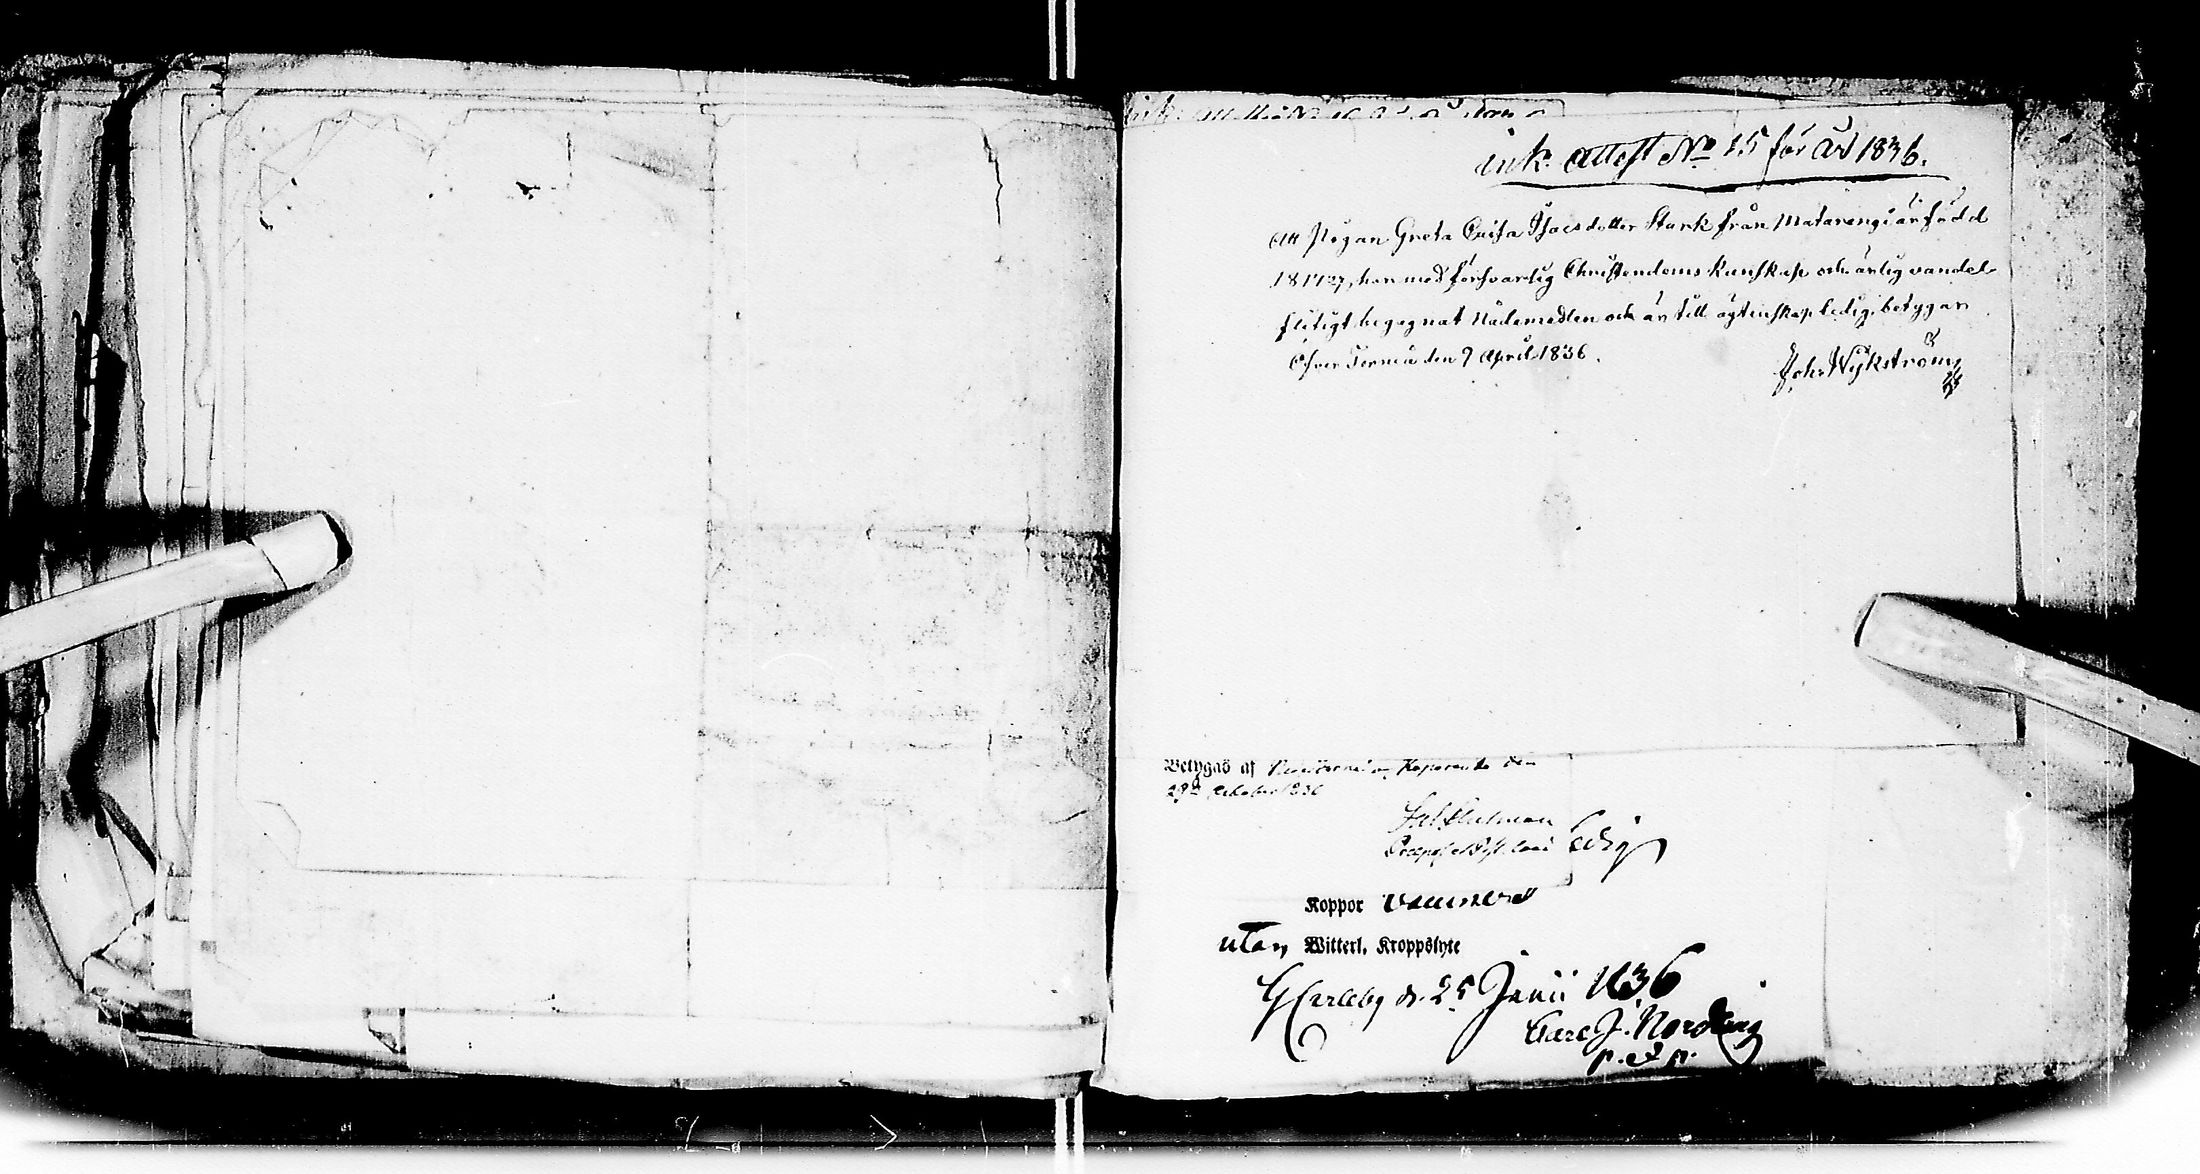 ink. attest No 15 för år 1836.
Att Pigan Greta Cajsa Isacsdotter Stark från Matarengi är född
18 17/2 17, har med försvarlig Christendoms kunskap och ärlig vandel
flitigt begagnat Nådemedlen och är till ägtenskap ledig, betygar
Öfver Torneå den 9 April 1836.
Joh. Wykström
Betygas af Torneå den
29de October 1836
Koppor vaccinerad
utan Witterl. Kroppslyte
GCarleby d. 25 Junii 1836
Carl J. Nordlung
p. et p.